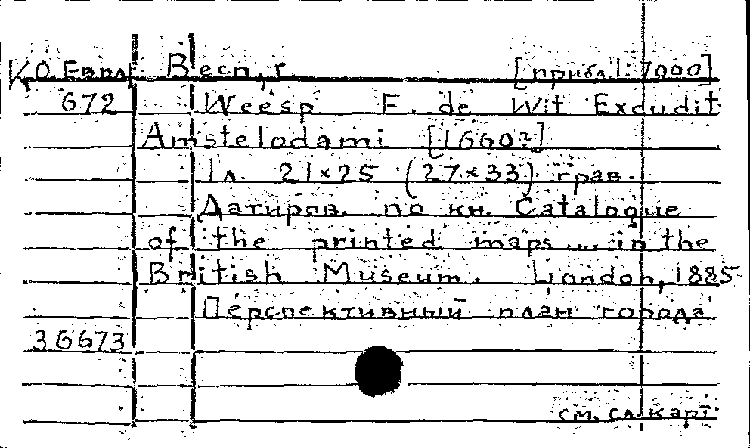 КО Евпл Весп, г. [прибл. 1:7000]
672 Weesp F. de Wit Excudit
Amstelodami [1660?]
1 л. 21×25 (27×33) грав.
Датиров. по кн. Catalogue
of the printed maps ... in the
British Museum. London, 1885
Перспективный план города
36673
см. сл. карт.